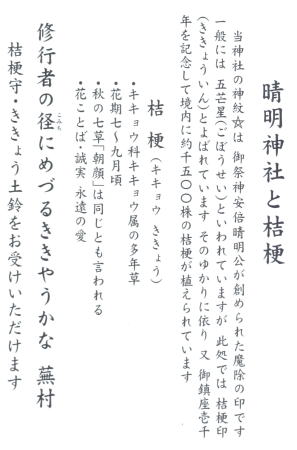 晴明神社と桔梗
当神社の神紋☆は 御祭神安倍晴明公が創められた魔除の印です
一般には 五芒星(ごぼうせい)といわれていますが 此処では 桔梗印
(ききょういん)とよばれています そのゆかりに依り 又 御鎮座壱千
年を記念して境内に約千五〇〇株の桔梗が植えられています
桔梗(キキョウ ききょう)
・キキョウ科キキョウ属の多年草
・花期七〜九月頃
・秋の七草「朝顔」は同じとも言われる
・花ことば・誠実 永遠の愛
修行者の径にめづるききやうかな 蕪村
こみち
桔梗守・ききょう土鈴をお受けいただけます